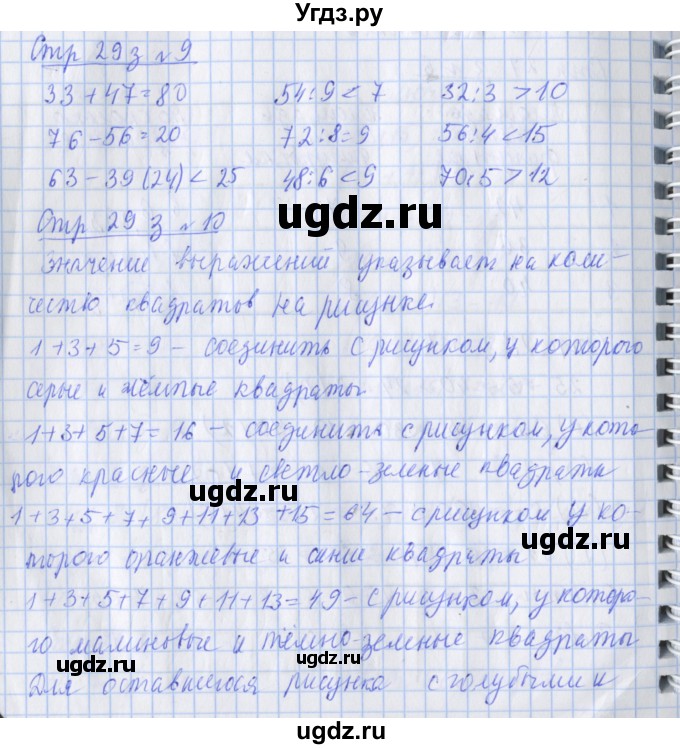 Угдз.ру
Стр 29 з №9
33+47=80 54:9<7 32:3>10
76-56=20 72:8=9 56:4<15
63-39(24)<25 48:6<9 70:5>12
ugdz.ru
Стр 29 з №10
значение выражений указывает на коли-
честью квадратов на рисунке.
1+3+5=9 - соединить с рисунком, у которого
серые и тёмные квадраты
1+3+5+7=16 - соединить с рисунком, у кото-
рого красные и светло-зеленые квадраты
ugdz.ru
1+3+5+7+9+11+13+15=64 - с рисунком у ко-
ugdz.ru
торого оранжевые и синие квадраты
1+3+5+7+9+11+13=49 - с рисунком, у которо-
го малиновые и тёмно-зеленые квадраты
ugdz.ru ugdz.ru
Для оставшегося рисунка с голубыми и
ugdz.ru